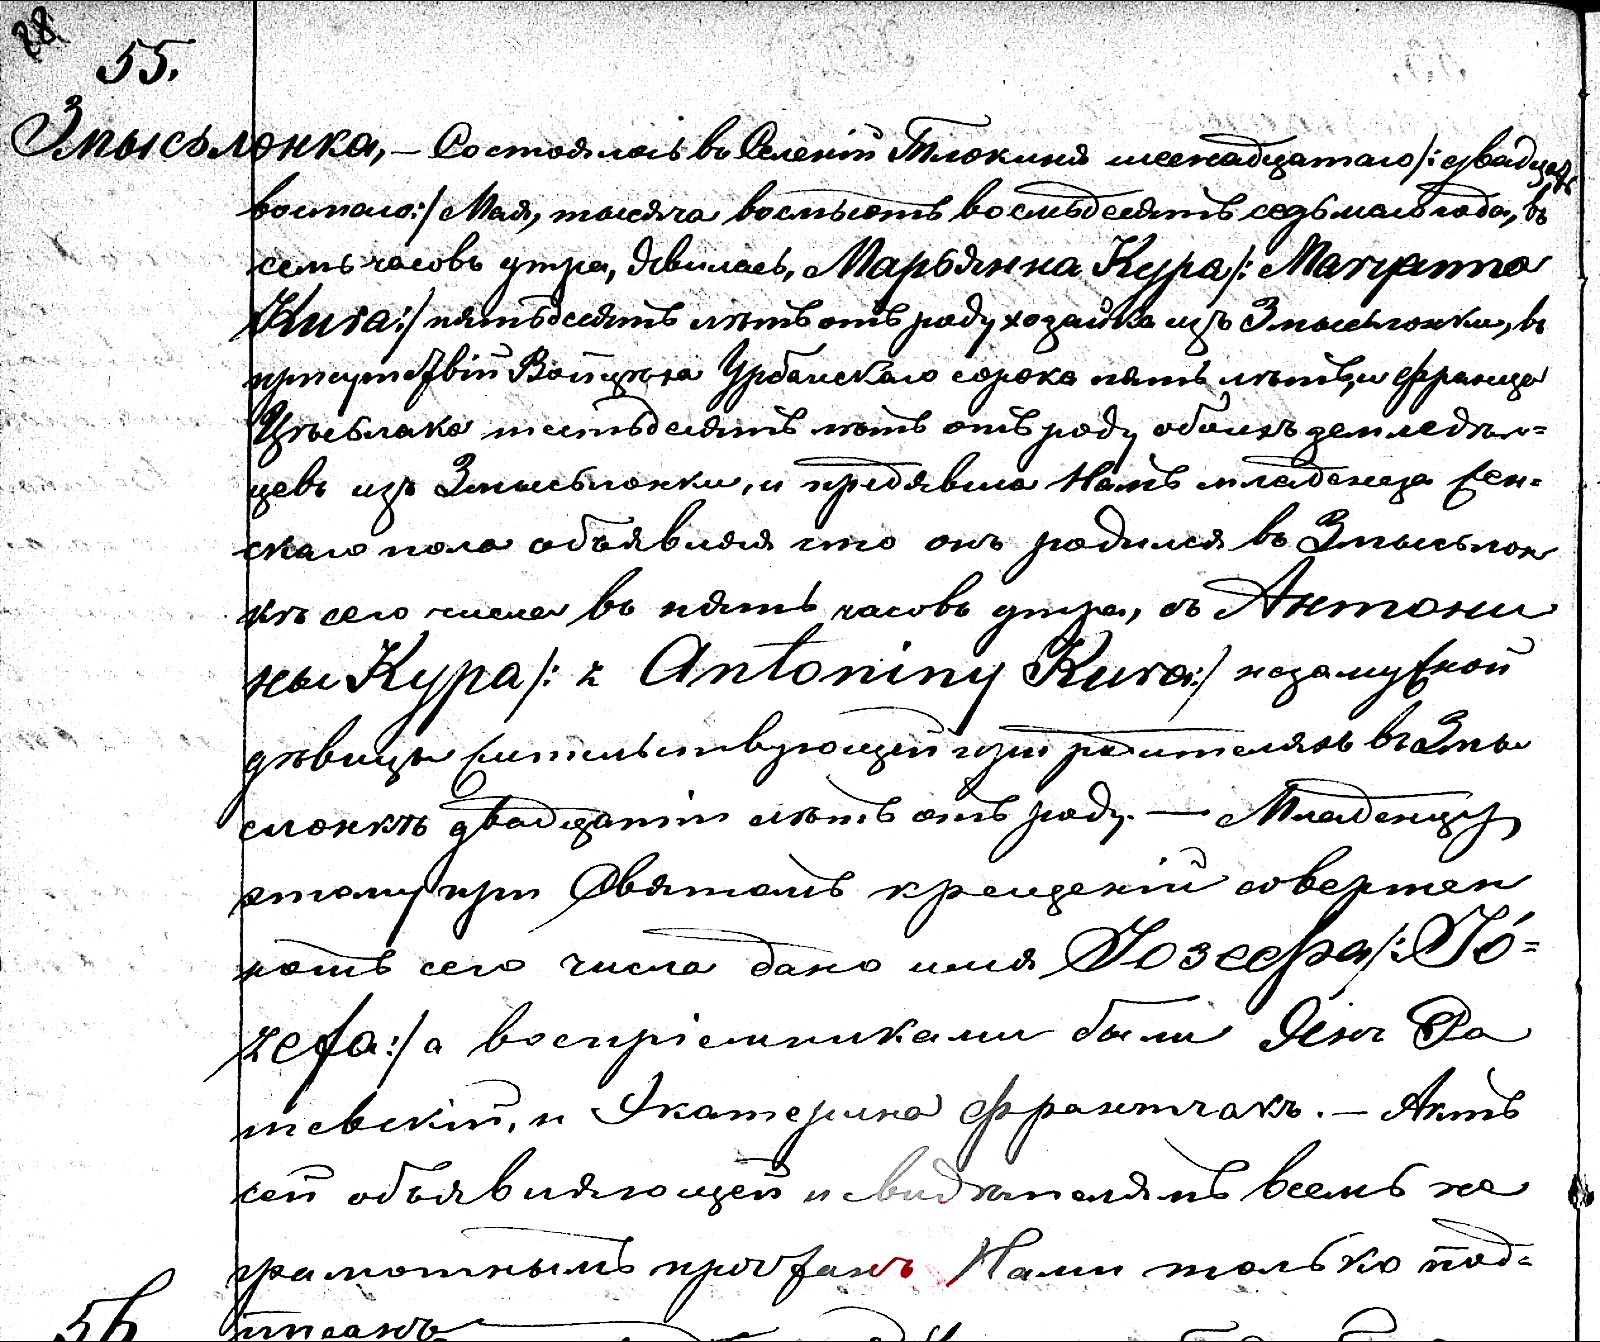 28.
55.
Змысьлонка, — Состоялось въ Селеніи Тлокиня шеснадцатаго /: двадцать
восмаго :/ Мая, тысяча восмьсотъ восмьдесятъ седьмаго года, въ
семь часовъ утра, Явилась, Марьянна Кура /: Maryanna
Kura :/ пятьдесятъ лѣтъ отъ роду хозайка изъ Змысьлонки, въ
присутствіи Войцѣха Урбанскаго сорокъ пять лѣтъ, и Франца
шестьдесятъ лѣтъ отъ роду обоихъ земледѣль=
цевъ изъ Змысьлонки, и предявила Намъ младенца жен=
скаго пола объявляя что онъ родился въ Змысьлон
кѣ сего числа въ пять часовъ утра, съ Антони
ны Кура /: z Antoniny Kura :/ незамужной
дѣвицы жительствующей при родителяхъ въ Змы
слонкѣ двадцати лѣтъ отъ роду. — Младенцу
этому при Святомъ крещеніи совершен
номъ сего числа дано имя Іозефа /: Jó=
zefa :/ а воспріемниками были Янъ Ра
шевскій, и Екатерина Франтчакъ. — Актъ
сей объявляющей и свидѣтелямъ всемъ не
грамотнымъ прочтанъ Нами только под=
писанъ
56